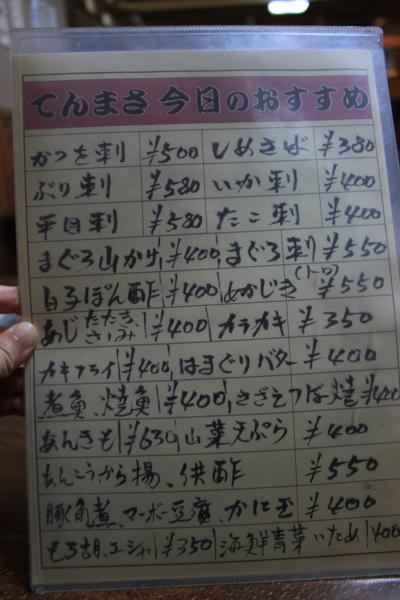 てんまさ 今日のおすすめ
かつを刺 ¥500 しめさば ¥380
ぶり刺 ¥580 いか刺 ¥400
平目刺 ¥580 たこ刺 ¥400
まぐろ山かけ ¥400 まぐろ刺 ¥550
白子ぽん酢 ¥400 めかじき(トロ) ¥550
あじたたき、さしみ ¥400 カラカキ ¥350
カキフライ ¥400 はまぐりバター ¥400
煮魚、焼魚 ¥400 さざえつぼ焼 ¥400
あんきも ¥630 山菜天ぷら ¥400
あんこうから揚、供酢 ¥550
豚角煮、マーボー豆腐、かに玉 ¥400
もろ胡、エシャ ¥350 海鮮青菜いため 400